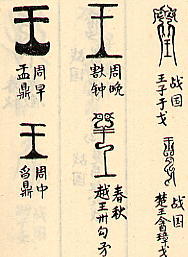 王
周早
盂鼎
王
周中
曶鼎
王
周晚
钟
春秋
越王州句矛
战国
王子于戈
战国
楚王酓璋戈